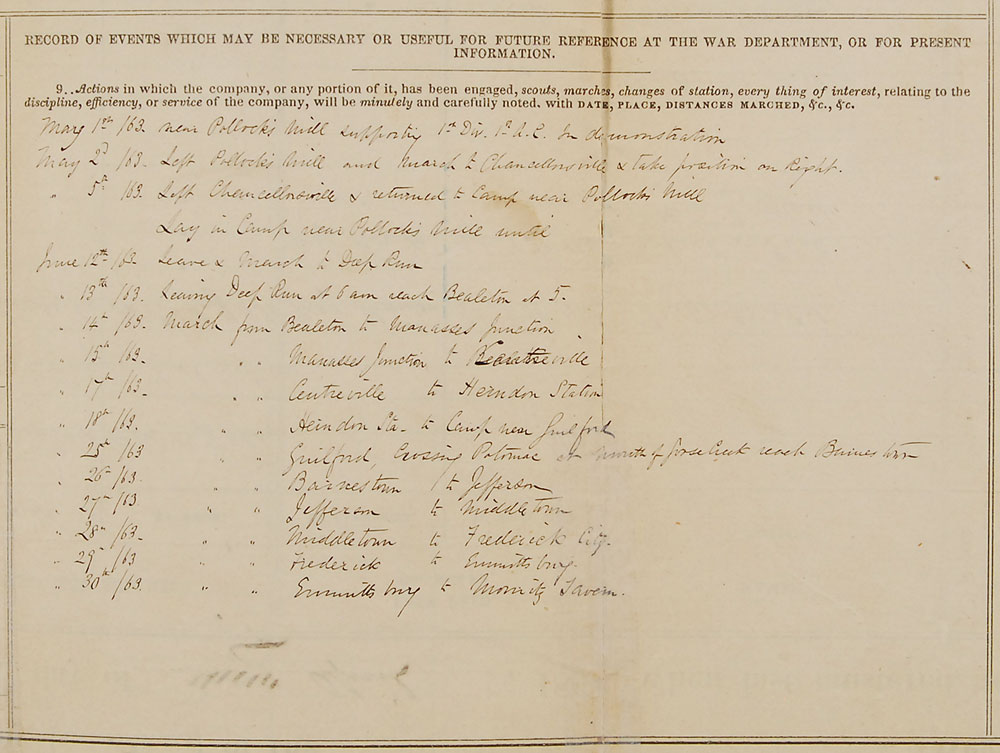 RECORD OF EVENTS WHICH MAY BE NECESSARY OR USEFUL FOR FUTURE REFERENCE AT THE WAR DEPARTMENT, OR FOR PRESENT
INFORMATION.
9..Actions in which the company, or any portion of it, has been engaged, scouts, marches, changes of station, every thing of interest, relating to the
discipline, efficiency, or service of the company, will be minutely and carefully noted. with DATE, PLACE, DISTANCES MARCHED, &c., &c.
May 1st /63. near Pollocks Mill supporting 1st Div. 1st A.C. In demonstration
May 2d /63. Left Pollock's Mill and March to Chancellorsville & take position on Right.
" 5th /63. Left Chancellorsville & returned to Camp near Pollocks Mill
Lay in Camp near Pollock's Mill until
June 12th /63. Leave & March to Deep Run
" 13th /63. Leaving Deep Run at 6 am reach Bealeton at 5.
" 14th /63. March from Bealeton to Manasses Junction
" 15th /63. " Manasses Junction to
" 17th /63. " " Centreville to Herndon Station
" 18th /63. " " Herndon Sta. to Camp near Guilford
" 25th /63 " " Guilford, Crossing Potomac at Mouth of Goose Creek reach Barnestown
" 26th /63. " " Barnestown to Jefferson
" 27th /63 " " Jefferson to Middletown
" 28th /63. " " Middletown to Frederick City.
" 29th /63 " " Frederick to Emmittsburg.
" 30th /63. " " Emmittsburg to Moritz Tavern.